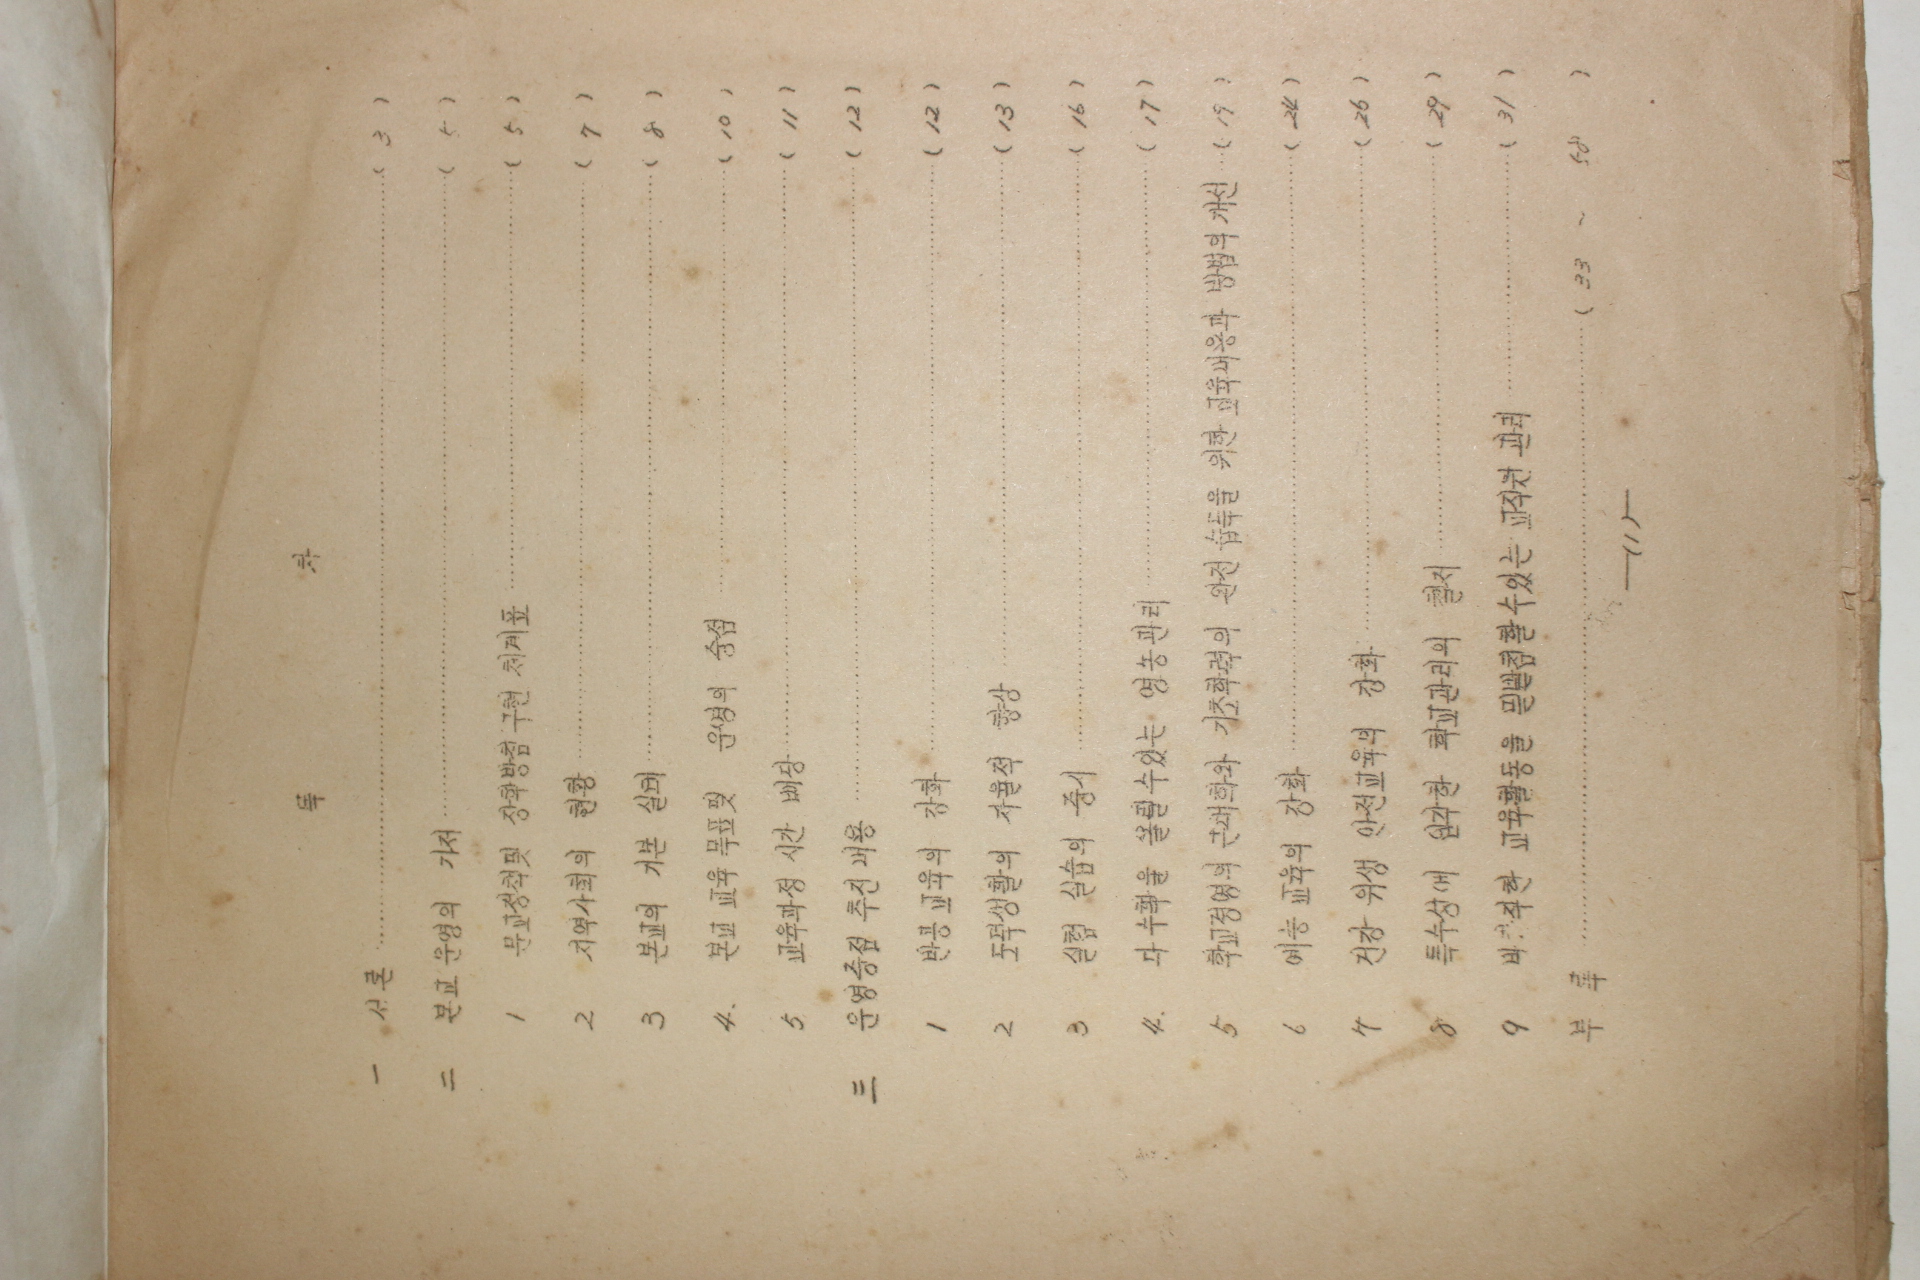 목 차
一 서론 ( 3 )
二 본교 운영의 기저 ( 5 )
1 문교정책및 장학방침 구현 체계표 ( 5 )
2 지역사회의 현황 ( 7 )
3 본교의 기본 실태 ( 8 )
4. 본교 교육 목표및 운영의 중점 ( 10 )
5 교육과정 시간 배당 ( 11 )
三 운영중점 추진 내용 ( 12 )
1 반공 교육의 강화 ( 12 )
2 도덕생활의 자율적 향상 ( 13 )
3 실험 실습의 중시 ( 16 )
4. 다 수확을 올릴 수있는 영농관리 ( 17 )
5 학교경영의 근대화와 기초학력의 완전 습득을 위한 교육내용과 방법의 개선 ( 19 )
6 예능 교육의 강화 ( 24 )
7 건강 위생 안전교육의 강화 ( 26 )
8 특수성에 입각한 학교관리의 철저 ( 29 )
9 바람직한 교육활동을 뒷받침할수있는 교직원 관리 ( 31 )
부 록 ( 33 ~ 58 )
—(1)—